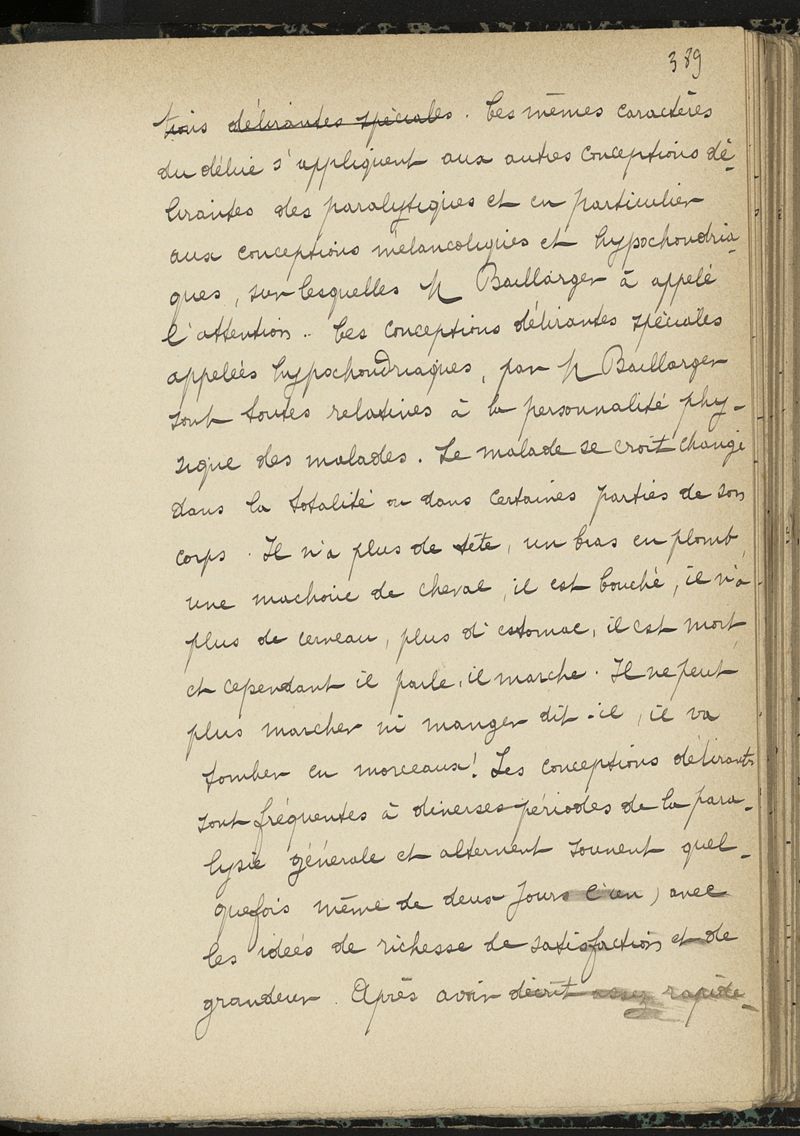 389
tions délirantes spéciales. Ces mêmes caractères
du délire s'appliquent aux autres conceptions dé-
lirantes des paralytiques et en particulier
aux conceptions mélancoliques et hypochondria-
ques, sur lesquelles M Baillarger à appelé
l'attention.. Ces conceptions délirantes spéciales
appelées hypochondriaques, par M Baillarger
sont toutes relatives à la personnalité phy-
sique des malades. Le malade se croit changé
dans la totalité ou dans certaines parties de son
corps. Il n'a plus de tête, un bras en plomb,
une machoire de cheval, il est bouché, il n'a
plus de cerveau, plus d'estomac, il est mort,
et cependant il parle, il marche. Il ne peut
plus marcher ni manger dit-il, il va
tomber en morceaux! Les conceptions délirantes
sont fréquentes à diverses périodes de la para-
lysie générale et alternent souvent quel-
quefois même de deux jours l'un) avec
les idées de richesse de satisfaction et de
grandeur. Après avoir décrit assez rapide-